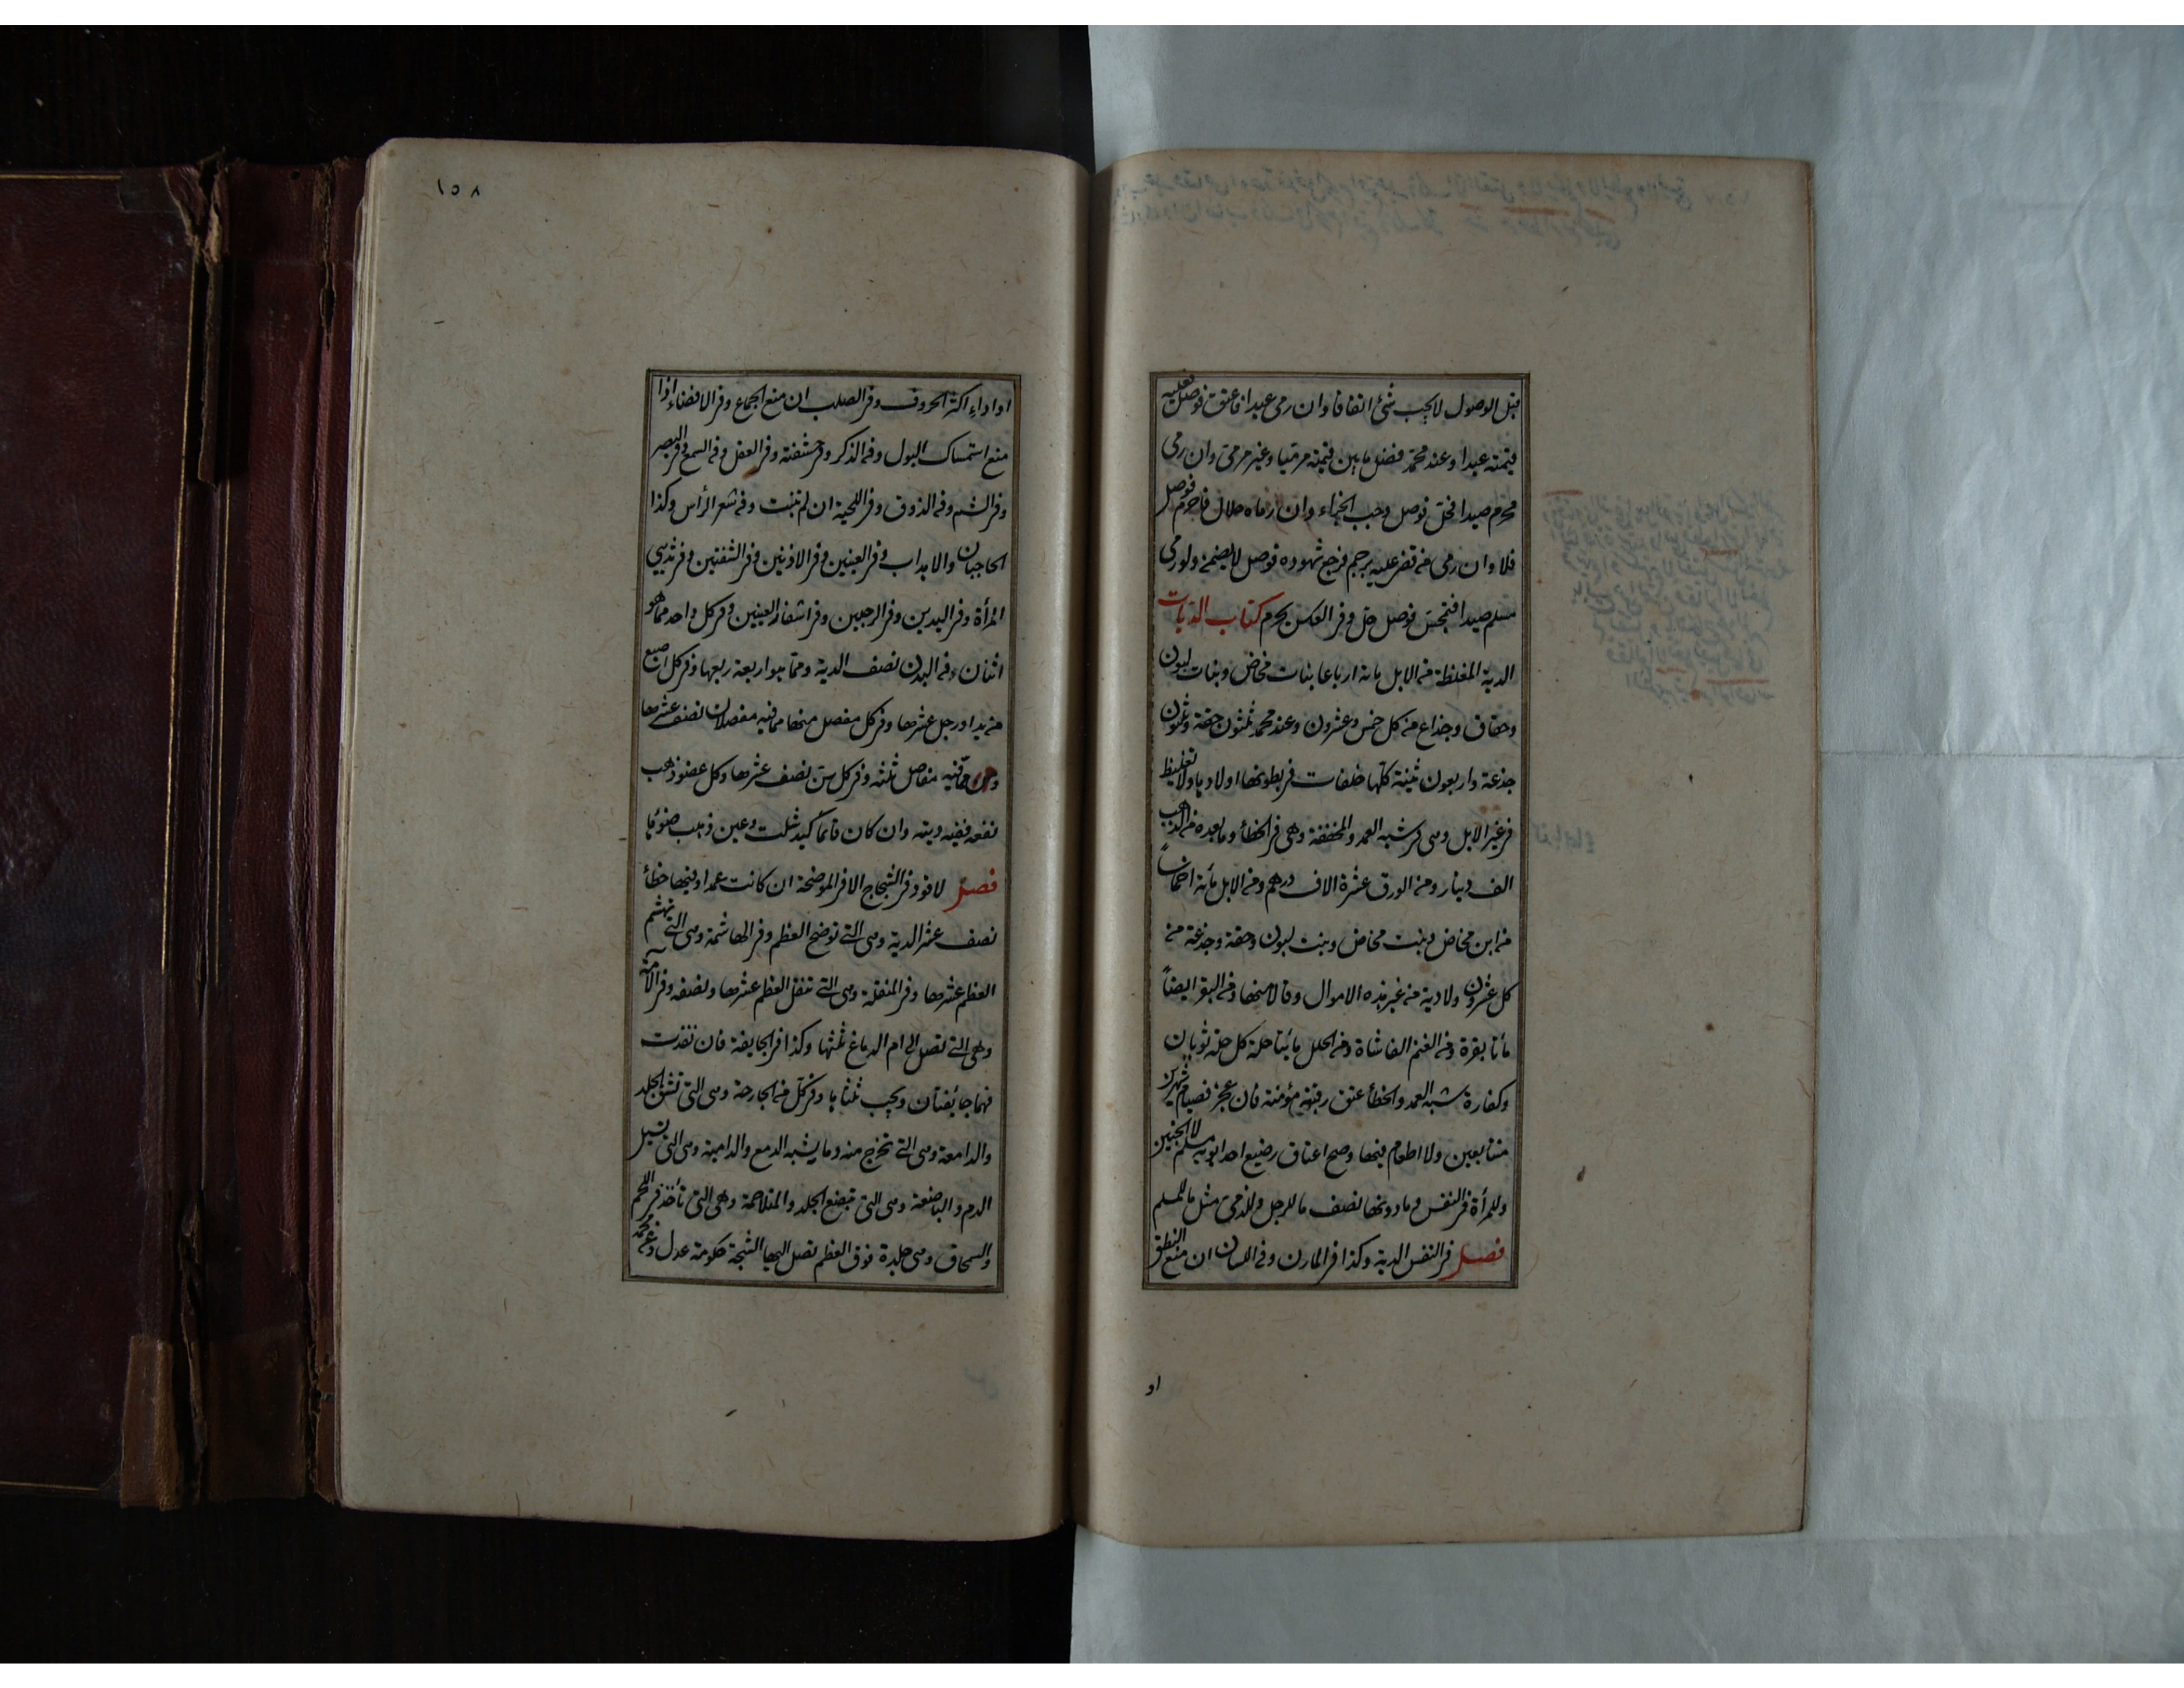 قبل الوصول لا يجب شئ اتفاقا وان رمى عبدا فاعتق فوصل فعليه
قيمته عبدا وعند محمد فضل ما بين قيمته مرميا وغير مرمى وان رمى
محرم صيدا فحل فوصل وجب الجزاء وان رماه حلال فاحرم فوصل
فلا وان رمى من قضى عليه برجم فرجع شهوده فوصل لا يضمن ولو رمى
مسلم صيدا فتمجس فوصل حل وفى العكس يحرم كتاب الديات
الدية المغلظة من الابل مائة ارباعا بنات مخاض وبنات لبون
وحقاق وجذاع من كل خمس وعشرون وعند محمد ثلثون حقة وثلثون
جذعة واربعون ثنية كلها خلفات فى بطونها اولادها ولا تغليظ
فى غير الابل وهى فى شبه العمد والمخففة وهى فى الخطأ وما بعده من الذهب
الف دينار ومن الورق عشرة الاف درهم ومن الابل مائة اخماسا
من ابن مخاض وبنت مخاض وبنت لبون وحقة وجذعة من
كل عشرون ولا دية من غير هذه الاموال وقالا منها ومن البقر ايضا
مأتا بقرة ومن الغنم الفا شاة ومن الحلل مائتا حلة كل حلة ثوبان
وكفارة شبه العمد والخطأ عتق رقبة مؤمنة فان عجز فصيام شهرين
متتابعين ولا اطعام فيها وصح اعتاق رضيع احد ابويه مسلم لا الجنين
وللمرأة فى النفس وما دونها نصف ما للرجل وللذمى مثل ما للمسلم
فصل فى النفس الدية وكذا فى المارن وفى اللسان ان منع النطق
او
١٥٨
او اداء اكثر الحروف وفى الصلب ان منع الجماع وفى الافضاء اذا
منع استمساك البول وفى الذكر وفى حشفته وفى العقل وفى السمع وفى البصر
وفى الشم وفى الذوق وفى اللحية ان لم تنبت وفى شعر الرأس وكذا
الحاجبان والاهداب وفى العينين وفى الاذنين وفى الشفتين وفى ثديى
المرأة وفى اليدين وفى الرجلين وفى اشفار العينين وفى كل واحد مما هو
اثنان فى البدن نصف الدية ومما هو اربعة ربعها وفى كل اصبع
من يد او رجل عشرها وفى كل مفصل منها مما فيه مفصلان نصف عشرها
ومما فيه مفاصل ثلثه وفى كل سن نصف عشرها وكل عضو ذهب
نفعه ففيه ديته وان كان قائما كيد شلت وعين ذهب ضوئها
فصل لا قود فى الشجاج الا فى الموضحة ان كانت عمدا وفيها خطأ
نصف عشر الدية وهى التى توضح العظم وفى الهاشمة وهى التى تهشم
العظم عشرها وفى المنقلة وهى التى تنقل العظم عشرها ونصفه وفى الآمة
وهى التى تصل الى ام الدماغ ثلثها وكذا فى الجايفة فان نفذت
فهما جائفتان ويجب ثلثاها وفى كل من الحارصة وهى التى تشق الجلد
والدامعة وهى التى تخرج منه وما يشبه الدمع والدامية وهى التى تسيل
الدم والباضعة وهى التى تبضع الجلد والمتلاحمة وهى التى تأخذ فى اللحم
والسمحاق وهى جلدة فوق العظم تصل اليها الشجة حكومة عدل وعن محمد